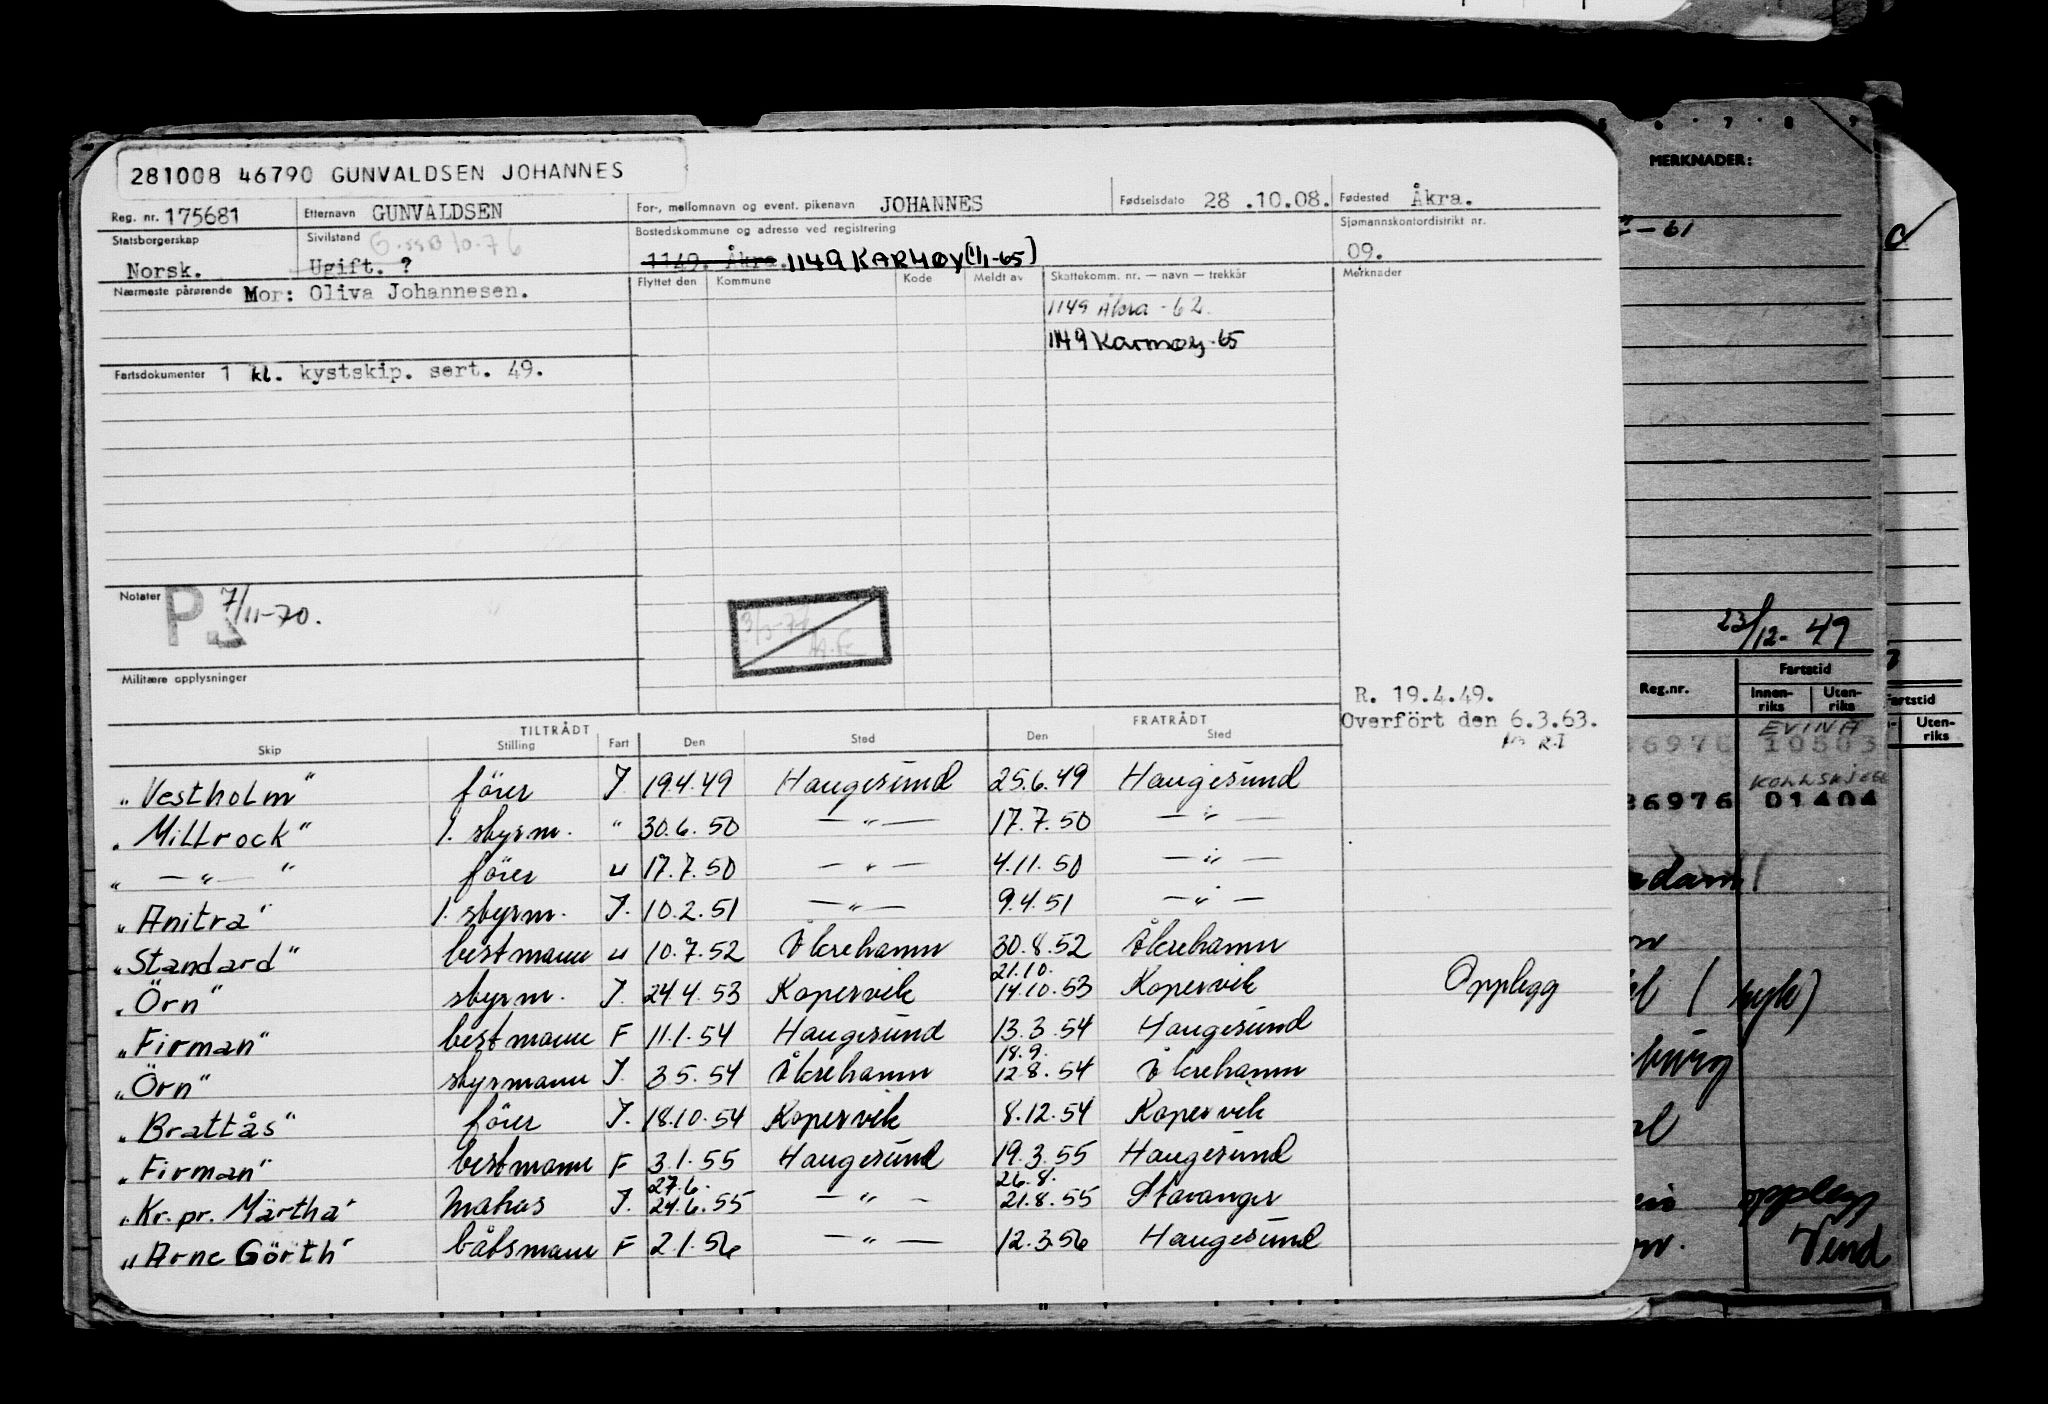 281008 46790 GUNVALDSEN JOHANNES
Reg. nr. 175681 Etternavn GUNVALDSEN For-, mellomnavn og event. pikenavn JOHANNES Fødselsdato 28 .10.08. Fødested Åkra.
Statsborgerskap Sivilstand Bostedskommune og adresse ved registrering Sjømannskontordistrikt nr.
Norsk. Ugift. ? 1149. Åkra. 1149 KARMØY (1/1-65) 09.
Nærmeste pårørende Mor: Oliva Johannesen. Flyttet den Kommune Kode Meldt av Skattekomm. nr. — navn — trekkår Merknader
1149 Åkra - 62.
1149 Karmøy - 65
Fartsdokumenter 1 kl. kystskip. sert. 49.
Notater P. 7/11-70.
Militære opplysninger
R. 19.4.49.
Overfört den 6.3.63.
R.I
TILTRÅDT FRATRÅDT
Skip Stilling Fart Den Sted Den Sted
"Vestholm" förer J 19.4.49 Haugesund 25.6.49 Haugesund
"Millrock" 1. styrm. " 30.6.50 — " — 17.7.50 — " —
" — " — " förer " 17.7.50 — " — 4.11.50 — " —
"Anitra" 1. styrm. J. 10.2.51 — " — 9.4.51 — " —
"Standard" bestmann " 10.7.52 Åkrehamn 30.8.52 Åkrehamn
21.10.
"Örn" styrm. J. 24.4.53 Kopervik 14.10.53 Kopervik Opplegg
"Firman" bestmann F 11.1.54 Haugesund 13.3.54 Haugesund
18.9.
"Örn" styrmann J. 3.5.54 Åkrehamn 12.8.54 Åkrehamn
"Brattås" förer J. 18.10.54 Kopervik 8.12.54 Kopervik
"Firman" bestmann F 3.1.55 Haugesund 19.3.55 Haugesund
27.6. 26.8.
"Kr. pr. Märtha" matros J. 24.6.55 — " — 21.8.55 Stavanger
"Arne Görth" båtsmann F 2.1.56 — " — 12.3.56 Haugesund
MERKNADER:
- 61
23/12- 49
Reg.nr. Fartstid
Innen-riks Uten-riks
EVINA
10503
36976 01404
Fartstid
Uten-riks
opplegg
Vend